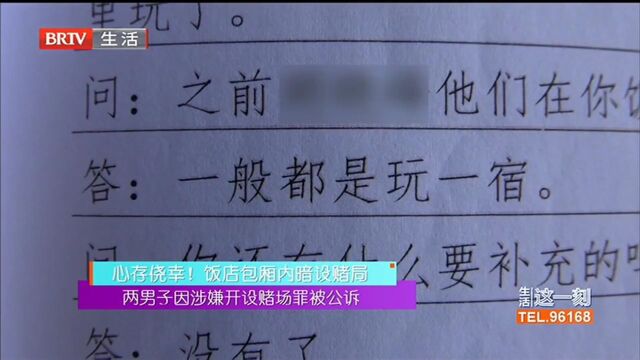 里玩了。
BRTV 生活
问：之前 他们在你饭
答：一般都是玩一宿。
问：你还有什么要补充的吗
心存侥幸！饭店包厢内暗设赌局
两男子因涉嫌开设赌场罪被公诉
答：没有了
生活 这一刻
TEL.96168